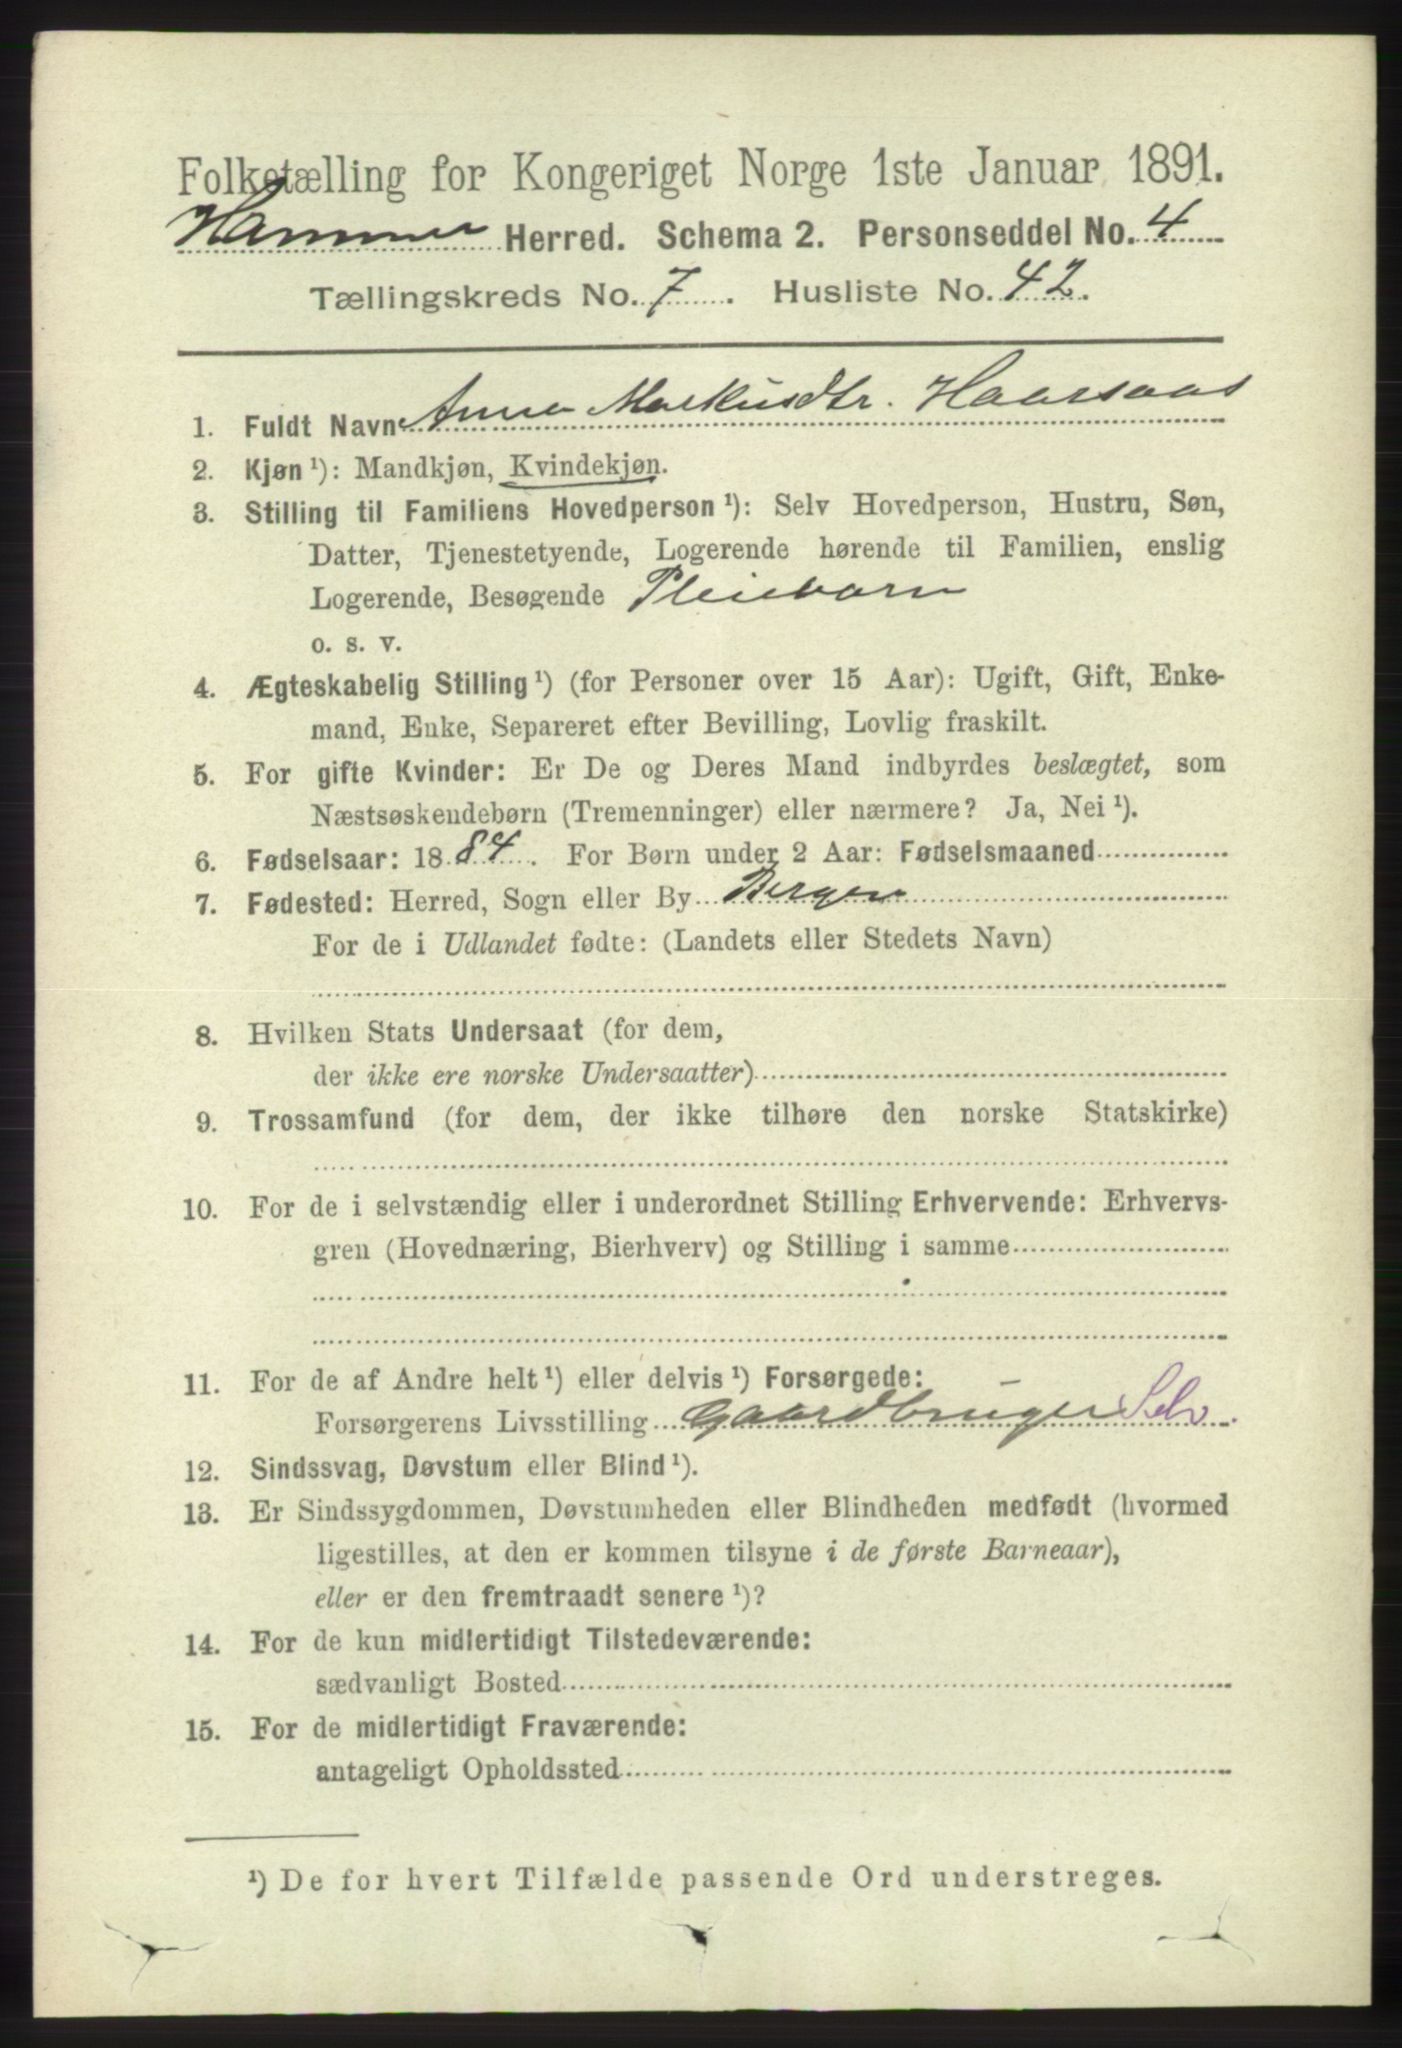 Folketælling for Kongeriget Norge 1ste Januar 1891.
Hammer Herred. Schema 2. Personseddel No. 4
Tællingskreds No. 7. Husliste No. 42.
1. Fuldt Navn Anna Markusdtr. Haarsaas
2. Kjøn ¹): Mandkjøn, Kvindekjøn.
3. Stilling til Familiens Hovedperson ¹): Selv Hovedperson, Hustru, Søn,
Datter, Tjenestetyende, Logerende hørende til Familien, enslig
Logerende, Besøgende Pleiebarn
o. s. v.
4. Ægteskabelig Stilling ¹) (for Personer over 15 Aar): Ugift, Gift, Enke-
mand, Enke, Separeret efter Bevilling, Lovlig fraskilt.
5. For gifte Kvinder: Er De og Deres Mand indbyrdes beslægtet, som
Næstsøskendebørn (Tremenninger) eller nærmere? Ja, Nei ¹).
6. Fødselsaar: 1884. For Børn under 2 Aar: Fødselsmaaned
7. Fødested: Herred, Sogn eller By Bergen
For de i Udlandet fødte: (Landets eller Stedets Navn)
8. Hvilken Stats Undersaat (for dem,
der ikke ere norske Undersaatter)
9. Trossamfund (for dem, der ikke tilhøre den norske Statskirke)
10. For de i selvstændig eller i underordnet Stilling Erhvervende: Erhvervs-
gren (Hovednæring, Bierhverv) og Stilling i samme
11. For de af Andre helt ¹) eller delvis ¹) Forsørgede:
Forsørgerens Livsstilling Gaardbruger Selv.
12. Sindssvag, Døvstum eller Blind ¹).
13. Er Sindssygdommen, Døvstumheden eller Blindheden medfødt (hvormed
ligestilles, at den er kommen tilsyne i de første Barneaar),
eller er den fremtraadt senere ¹)?
14. For de kun midlertidigt Tilstedeværende:
sædvanligt Bosted
15. For de midlertidigt Fraværende:
antageligt Opholdssted
¹) De for hvert Tilfælde passende Ord understreges.